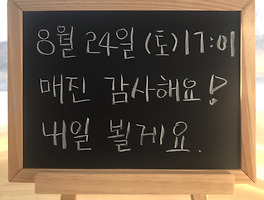 8월 24일 (토) 17:01
매진 감사해요!
내일 뵐게요.